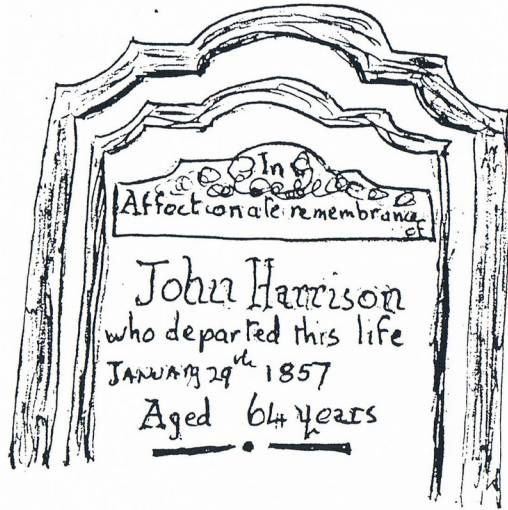 In
Affectionate remembrance
of
John Harrison
who departed this life
JANUARY 29th 1857
Aged 64 years